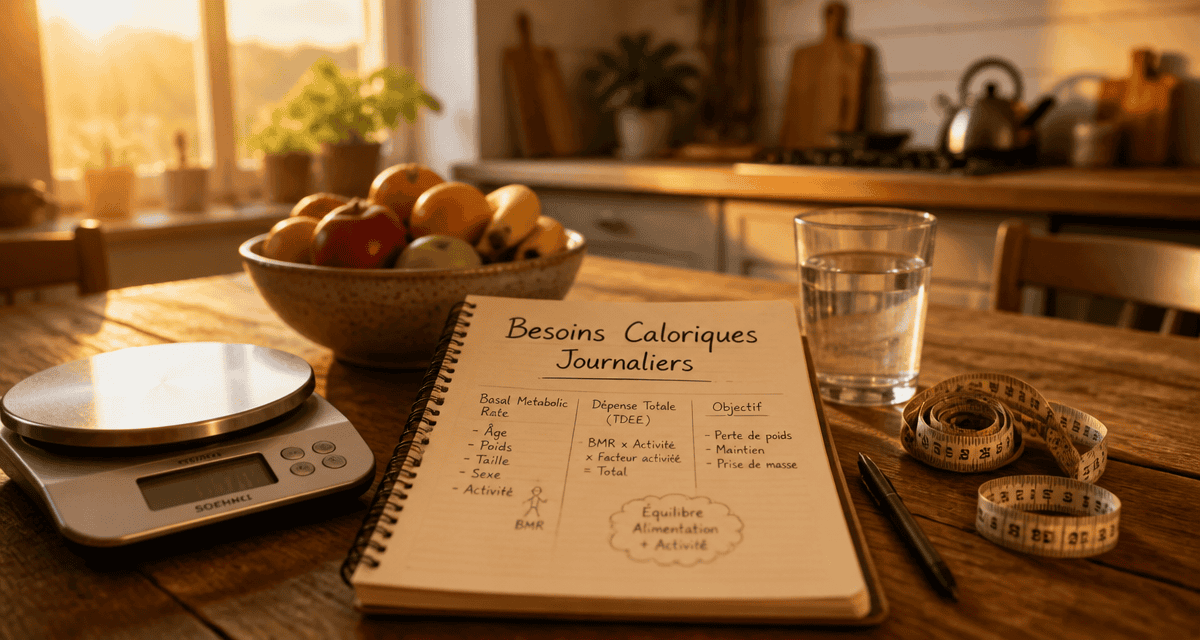 Besoins Caloriques
Journaliers
Basal Metabolic
Rate
- Âge
- Poids
- Taille
- Sexe
- Activité
BMR
Dépense Totale
(TDEE)
- BMR x Activité
x Facteur activité
= Total
Objectif
- Perte de poids
- Maintien
- Prise de masse
Équilibre
Alimentation
+ Activité